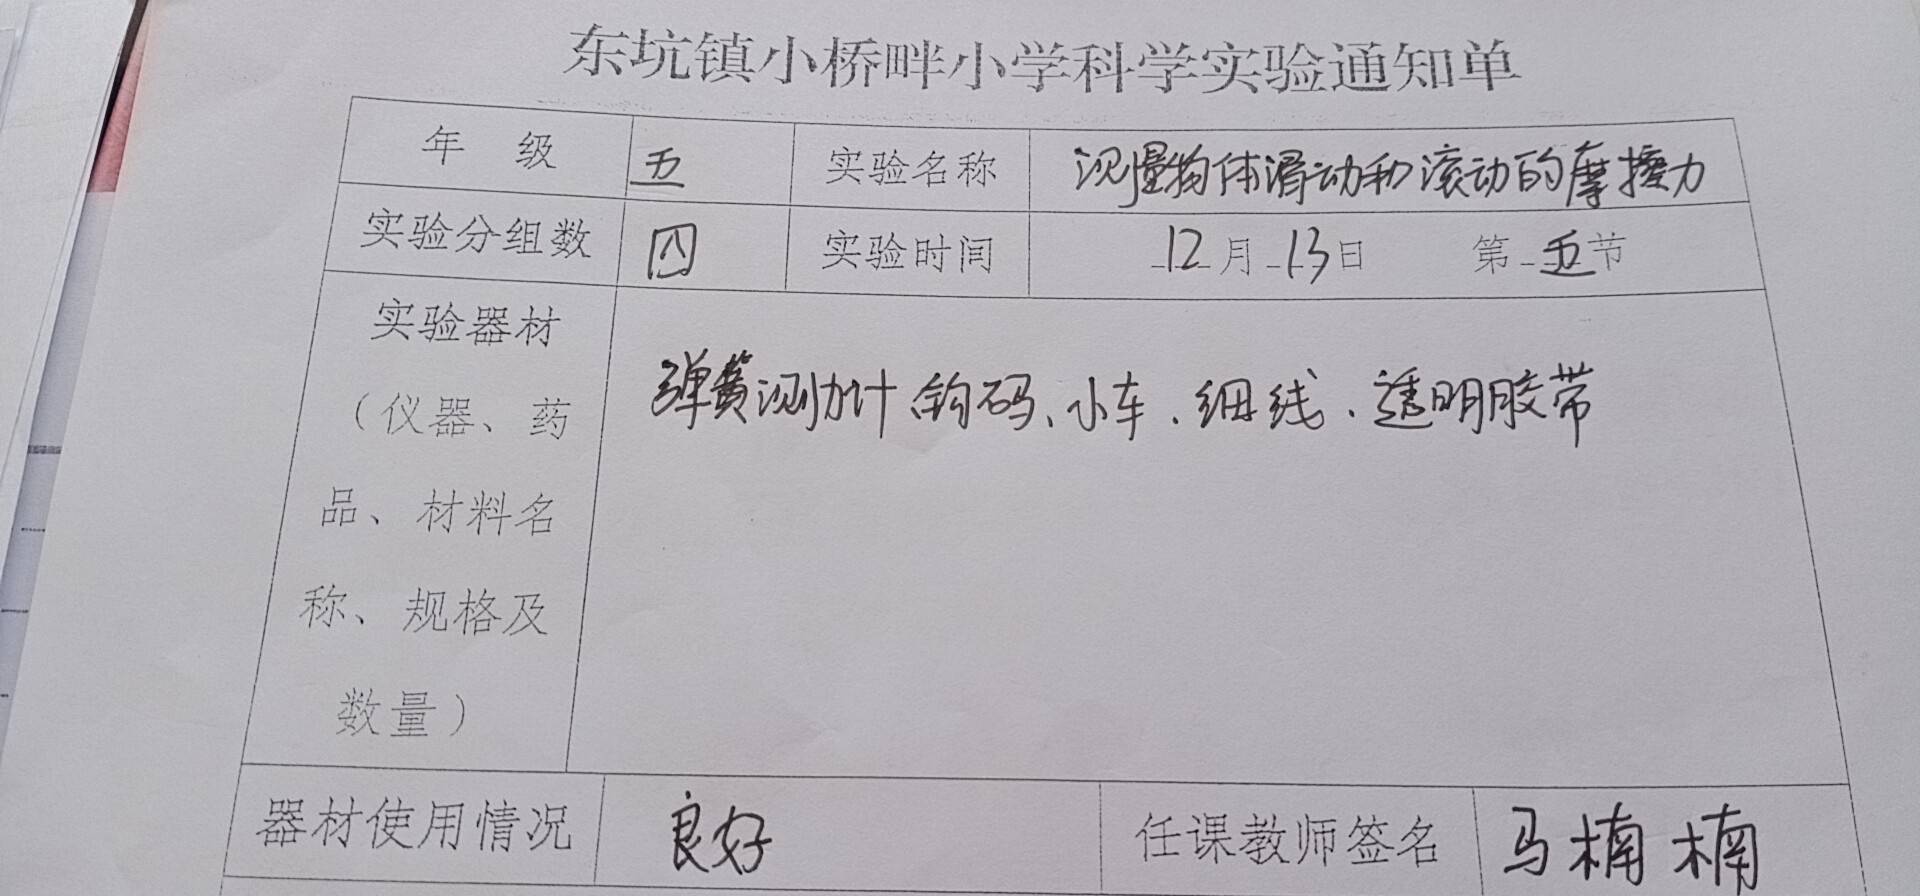 东坑镇小桥畔小学科学实验通知单
年 级 五 实验名称 测量物体滑动和滚动的摩擦力
实验分组数 四 实验时间 12月13日 第五节
实验器材
（仪器、药
品、材料名
称、规格及
数量）
弹簧测力计、钩码、小车、细线、透明胶带
器材使用情况 良好 任课教师签名 马楠楠